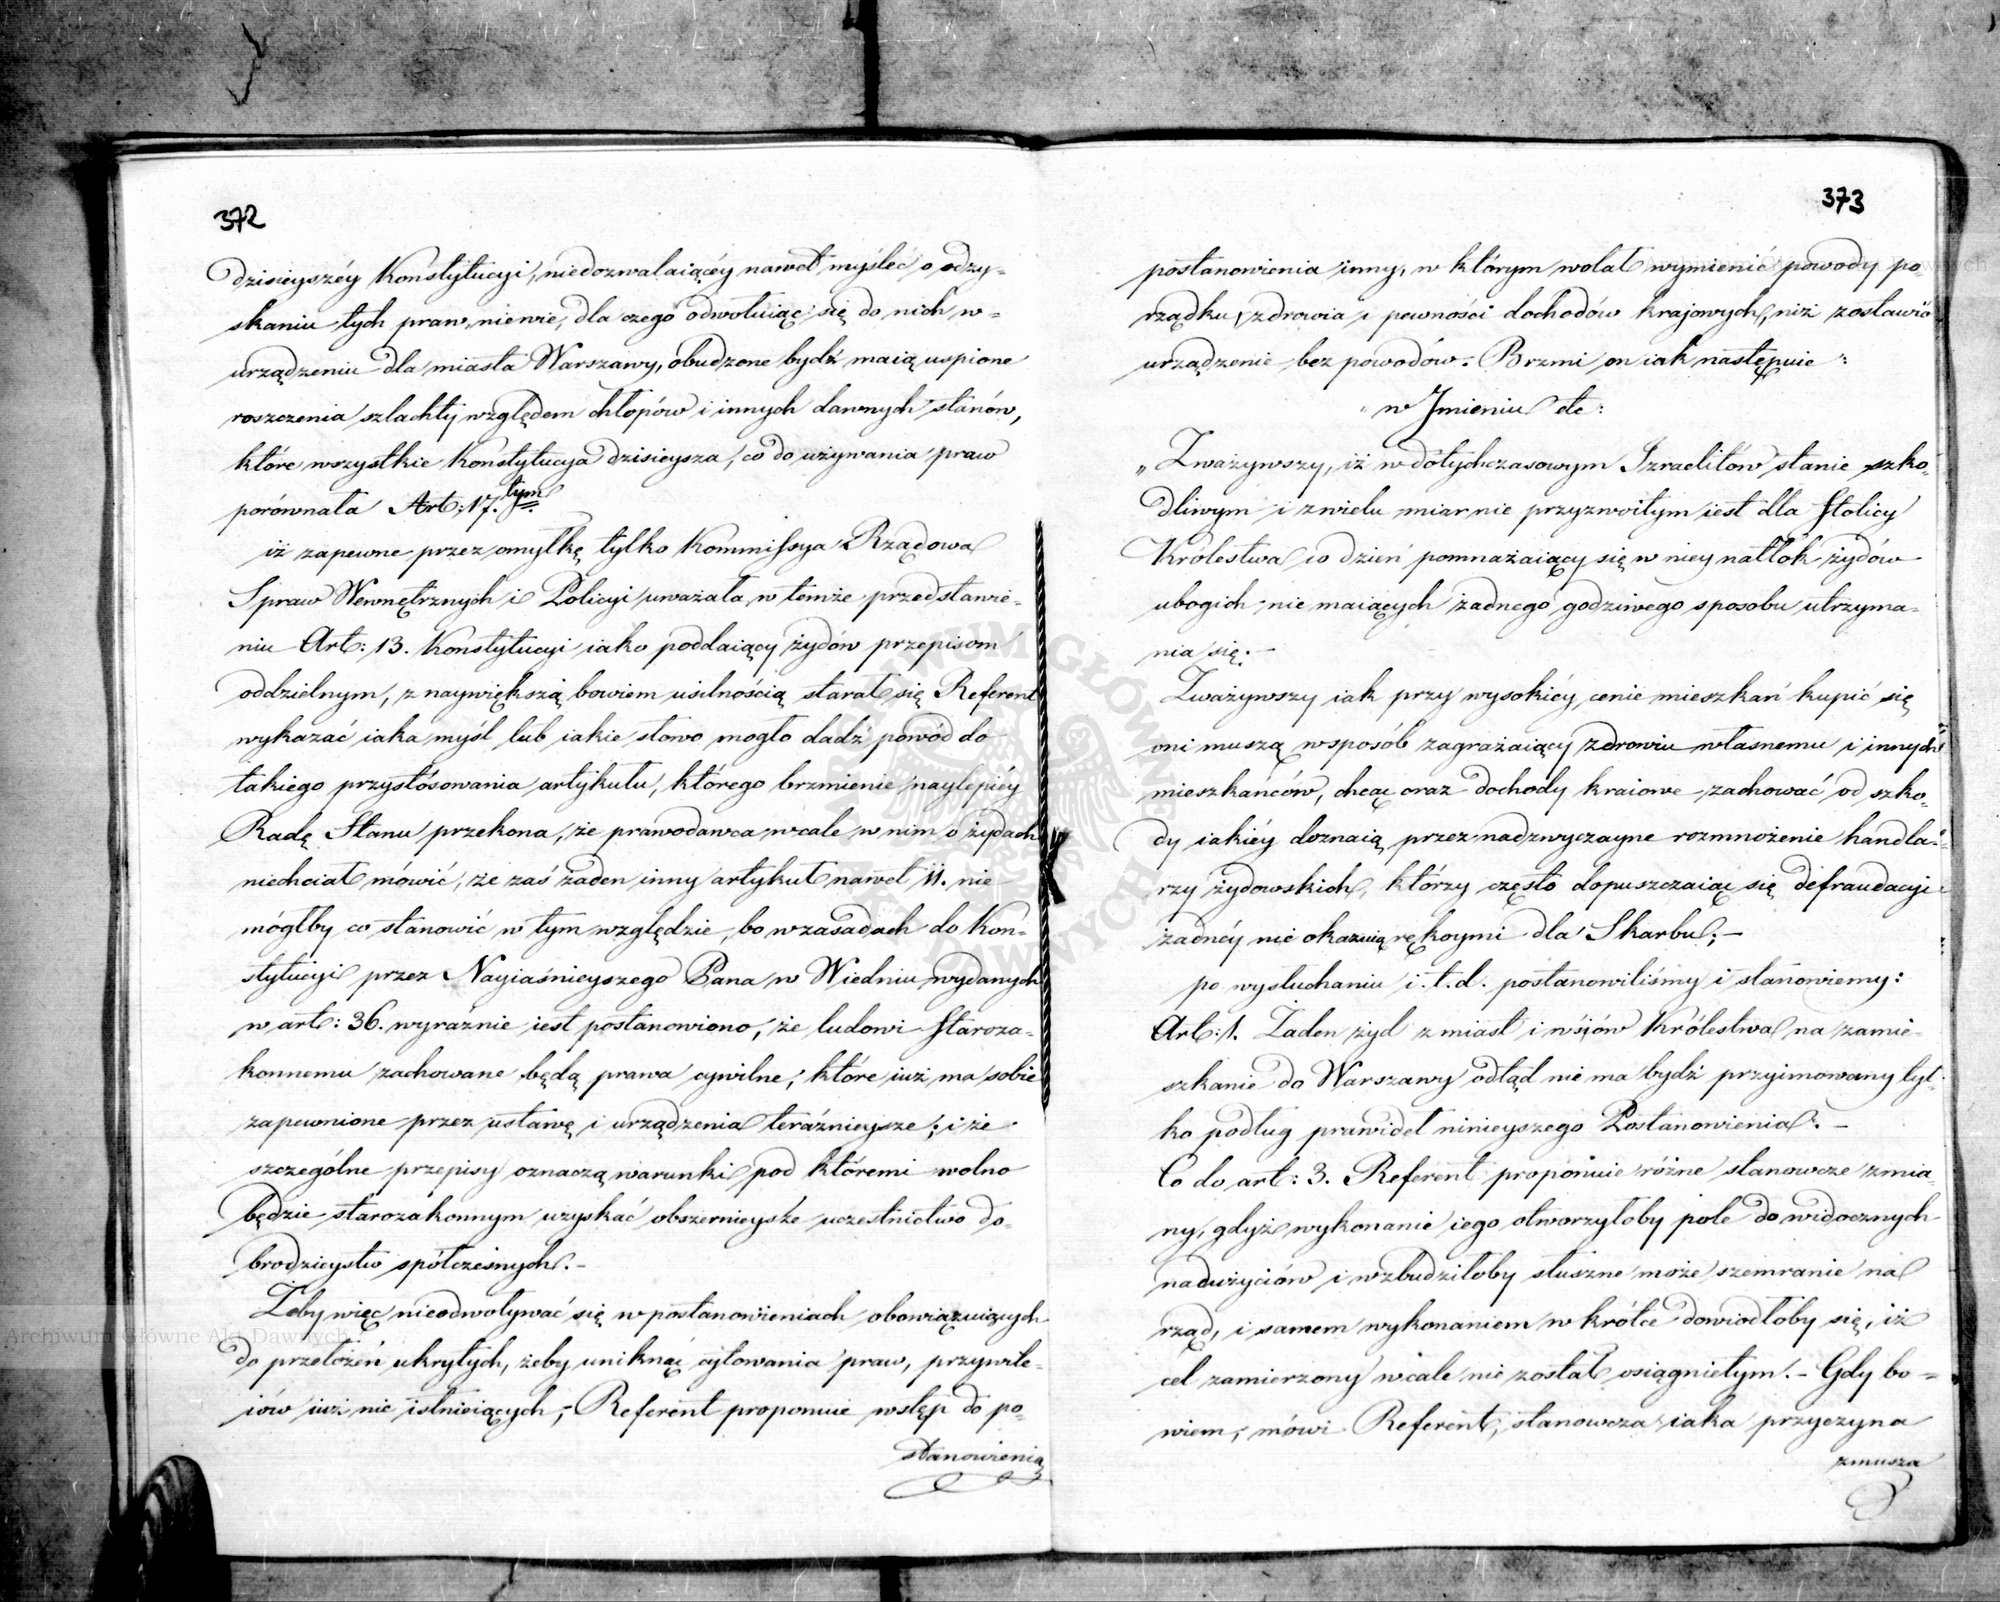 372
dzisieyszéy Konstytucyi, niedozwalaiącéy nawet myśleć o odzy-
skaniu tych praw, niewie, dla czego odwołuiąc się do nich w=
urządzeniu dla miasta Warszawy, obudzone bydź maią uspione
roszczenia szlachty względem chłopów i innych dawnych stanów,
które wszystkie Konstytucya dzisieysza, co do używania praw
porównała Art: 17.tym
iż zapewne przez omyłkę tylko Kommissya Rządowa
Spraw Wewnętrznych i Policyi uważała w temże przedstawie-
niu Art: 13. Konstytucyi iako poddaiący żydów przepisom
oddzielnym, z naywiększą bowiem usilnością starał się Referent
wykazać iaka myśl lub iakie słowo mogło dadź powód do
takiego przystósowania artykułu, którego brzmienie naylepiéy
Radę Stanu przekona, że prawodawca wcale w nim o żydach
niechciał mówić, że zaś żaden inny artykuł nawet 11. nie
mógłby co stanowić w tym względzie, bo w zasadach do Kon-
stytucyi przez Nayiaśnieyszego Pana w Wiedniu wydanych
w art: 36. wyraźnie iest postanowiono, że ludowi Staroza-
konnemu zachowane będą prawa cywilne, które iuż ma sobie
zapewnione przez ustawę i urządzenia teráźnieysze; i że
szczególne przepisy oznaczą warunki pod któremi wolno
będzie starozakonnym uzyskać obszernieysze uczestnictwo do-
brodzieystw spółczesnych.-
Żeby więc nieodwoływać się w postanowieniach obowiązuiących
do przełożeń ukrytych, żeby uniknąć cytowania praw, przywile-
iów iuż nie istnieiących,- Referent proponuie wstęp do po-
stanowienia
373
postanowienia inny, w którym wolał wymienić powody po
rządku, zdrowia i pewności dochodów krajowych, niż zostawić
urządzenie bez powodów. Brzmi on iak następuie:
"w Jmieniu etc:
"Zważywszy, iż w dotychczasowym Izraelitów stanie szko-
dliwym i z wielu miar nie przyzwoitym iest dla Stolicy
Królestwa co dzień pomnażaiący się w niey natłok żydów
ubogich nie maiących żadnego godziwego sposobu utrzyma-
nia się.-
Zważywszy iak przy wysokiéy cenie mieszkań kupić się
oni muszą w sposób zagrażaiący zdrowiu własnemu i innych
mieszkańców, chcąc oraz dochody kraiowe zachować od szko-
dy iakiéy doznaią przez nadzwyczayne rozmnożenie handla-
rzy żydowskich, którzy często dopuszczaiąc się defraudacyi
żadnéy nie okazuią rękoymi dla Skarbu;-
po wysłuchaniu i.t.d. postanowiliśmy i stanowiemy:
Art: 1. Żaden żyd z miast i wsiów Królestwa na zamie-
szkanie do Warszawy odtąd nie ma bydź przyimowany tyl-
ko podług prawideł ninieyszego Postanowienia.-
Co do art: 3. Referent proponuie różne stanowcze zmia-
ny, gdyż wykonanie iego otworzyłoby pole do widocznych
nadużyciów i wzbudziłoby słuszne może szemranie na
rząd, i samem wykonaniem w krótce dowiodłoby się, iż
cel zamierzony wcale nie został osiągnietym.- Gdy bo-
wiem, mówi Referent, stanowcza iaka przyczyna
zmusza